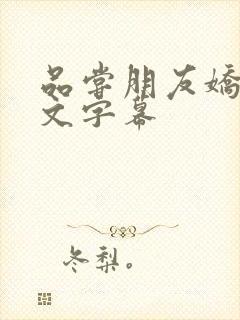 品尝朋友嬌
文字幕
冬梨。